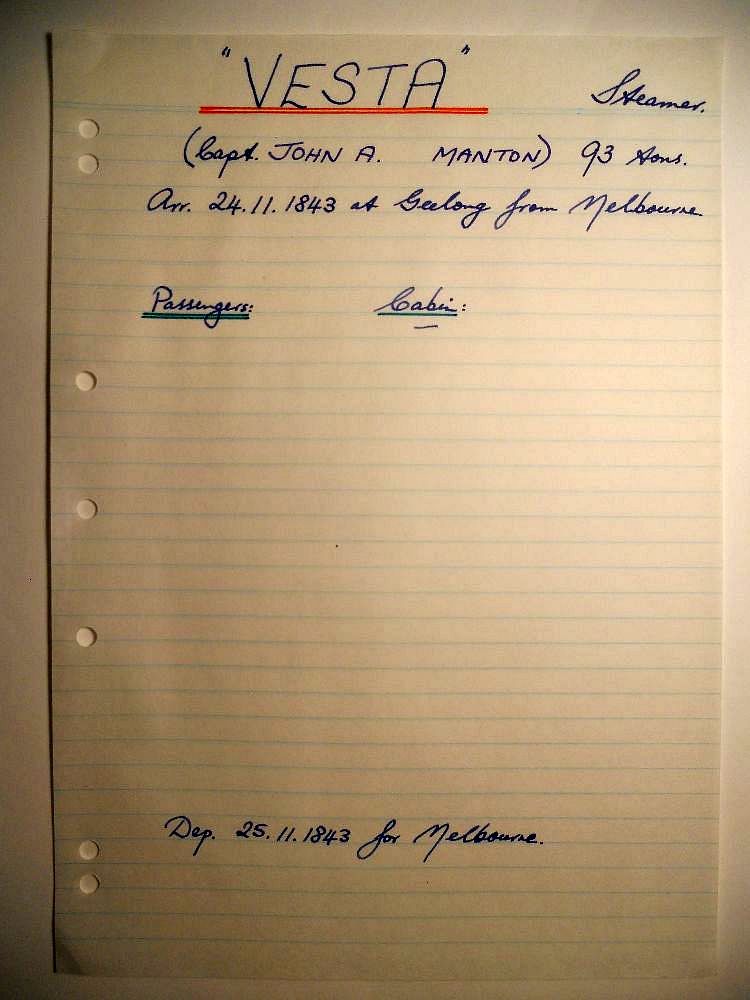 "VESTA" Steamer.
(Capt. JOHN A. MANTON) 93 tons.
Arr. 24.11.1843 at Geelong from Melbourne
Passengers: Cabin:
Dep. 25.11.1843 for Melbourne.